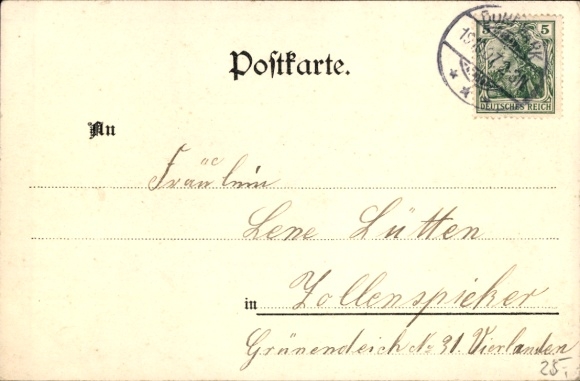 5 5
DEUTSCHES REICH
Postkarte.
An
Fräulein
Lene Lütten
in Zollenspieker
Grünendeich No 31. Vierlanden
25,-